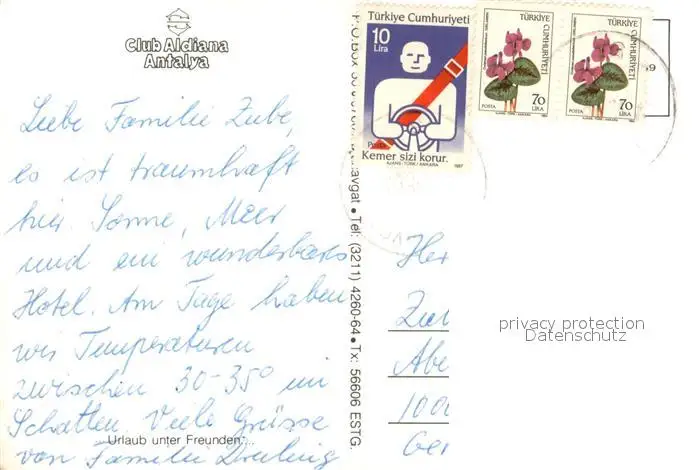 Club Aldiana
Antalya
Liebe Familie Zube,
es ist traumhaft
hier. Sonne, Meer
und ein wunderbares
Hotel. Am Tage haben
wir Temperaturen
zwischen 30-35° im
Schatten. Viele Grüsse
Urlaub unter Freunden...
von Familie
P.O.Box
avgat • Tel: (3211) 4260-64 • Tx: 56606 ESTG.
Türkiye Cumhuriyeti
10
Lira
Posta
Kemer sizi korur.
AJANS-TÜRK / ANKARA 1987
TÜRKİYE
CUMHURİYETİ
POSTA
70
LİRA
TÜRKİYE
CUMHURİYETİ
POSTA
70
LİRA
Her
Zu
Abe
100
Ger
privacy protection
Datenschutz